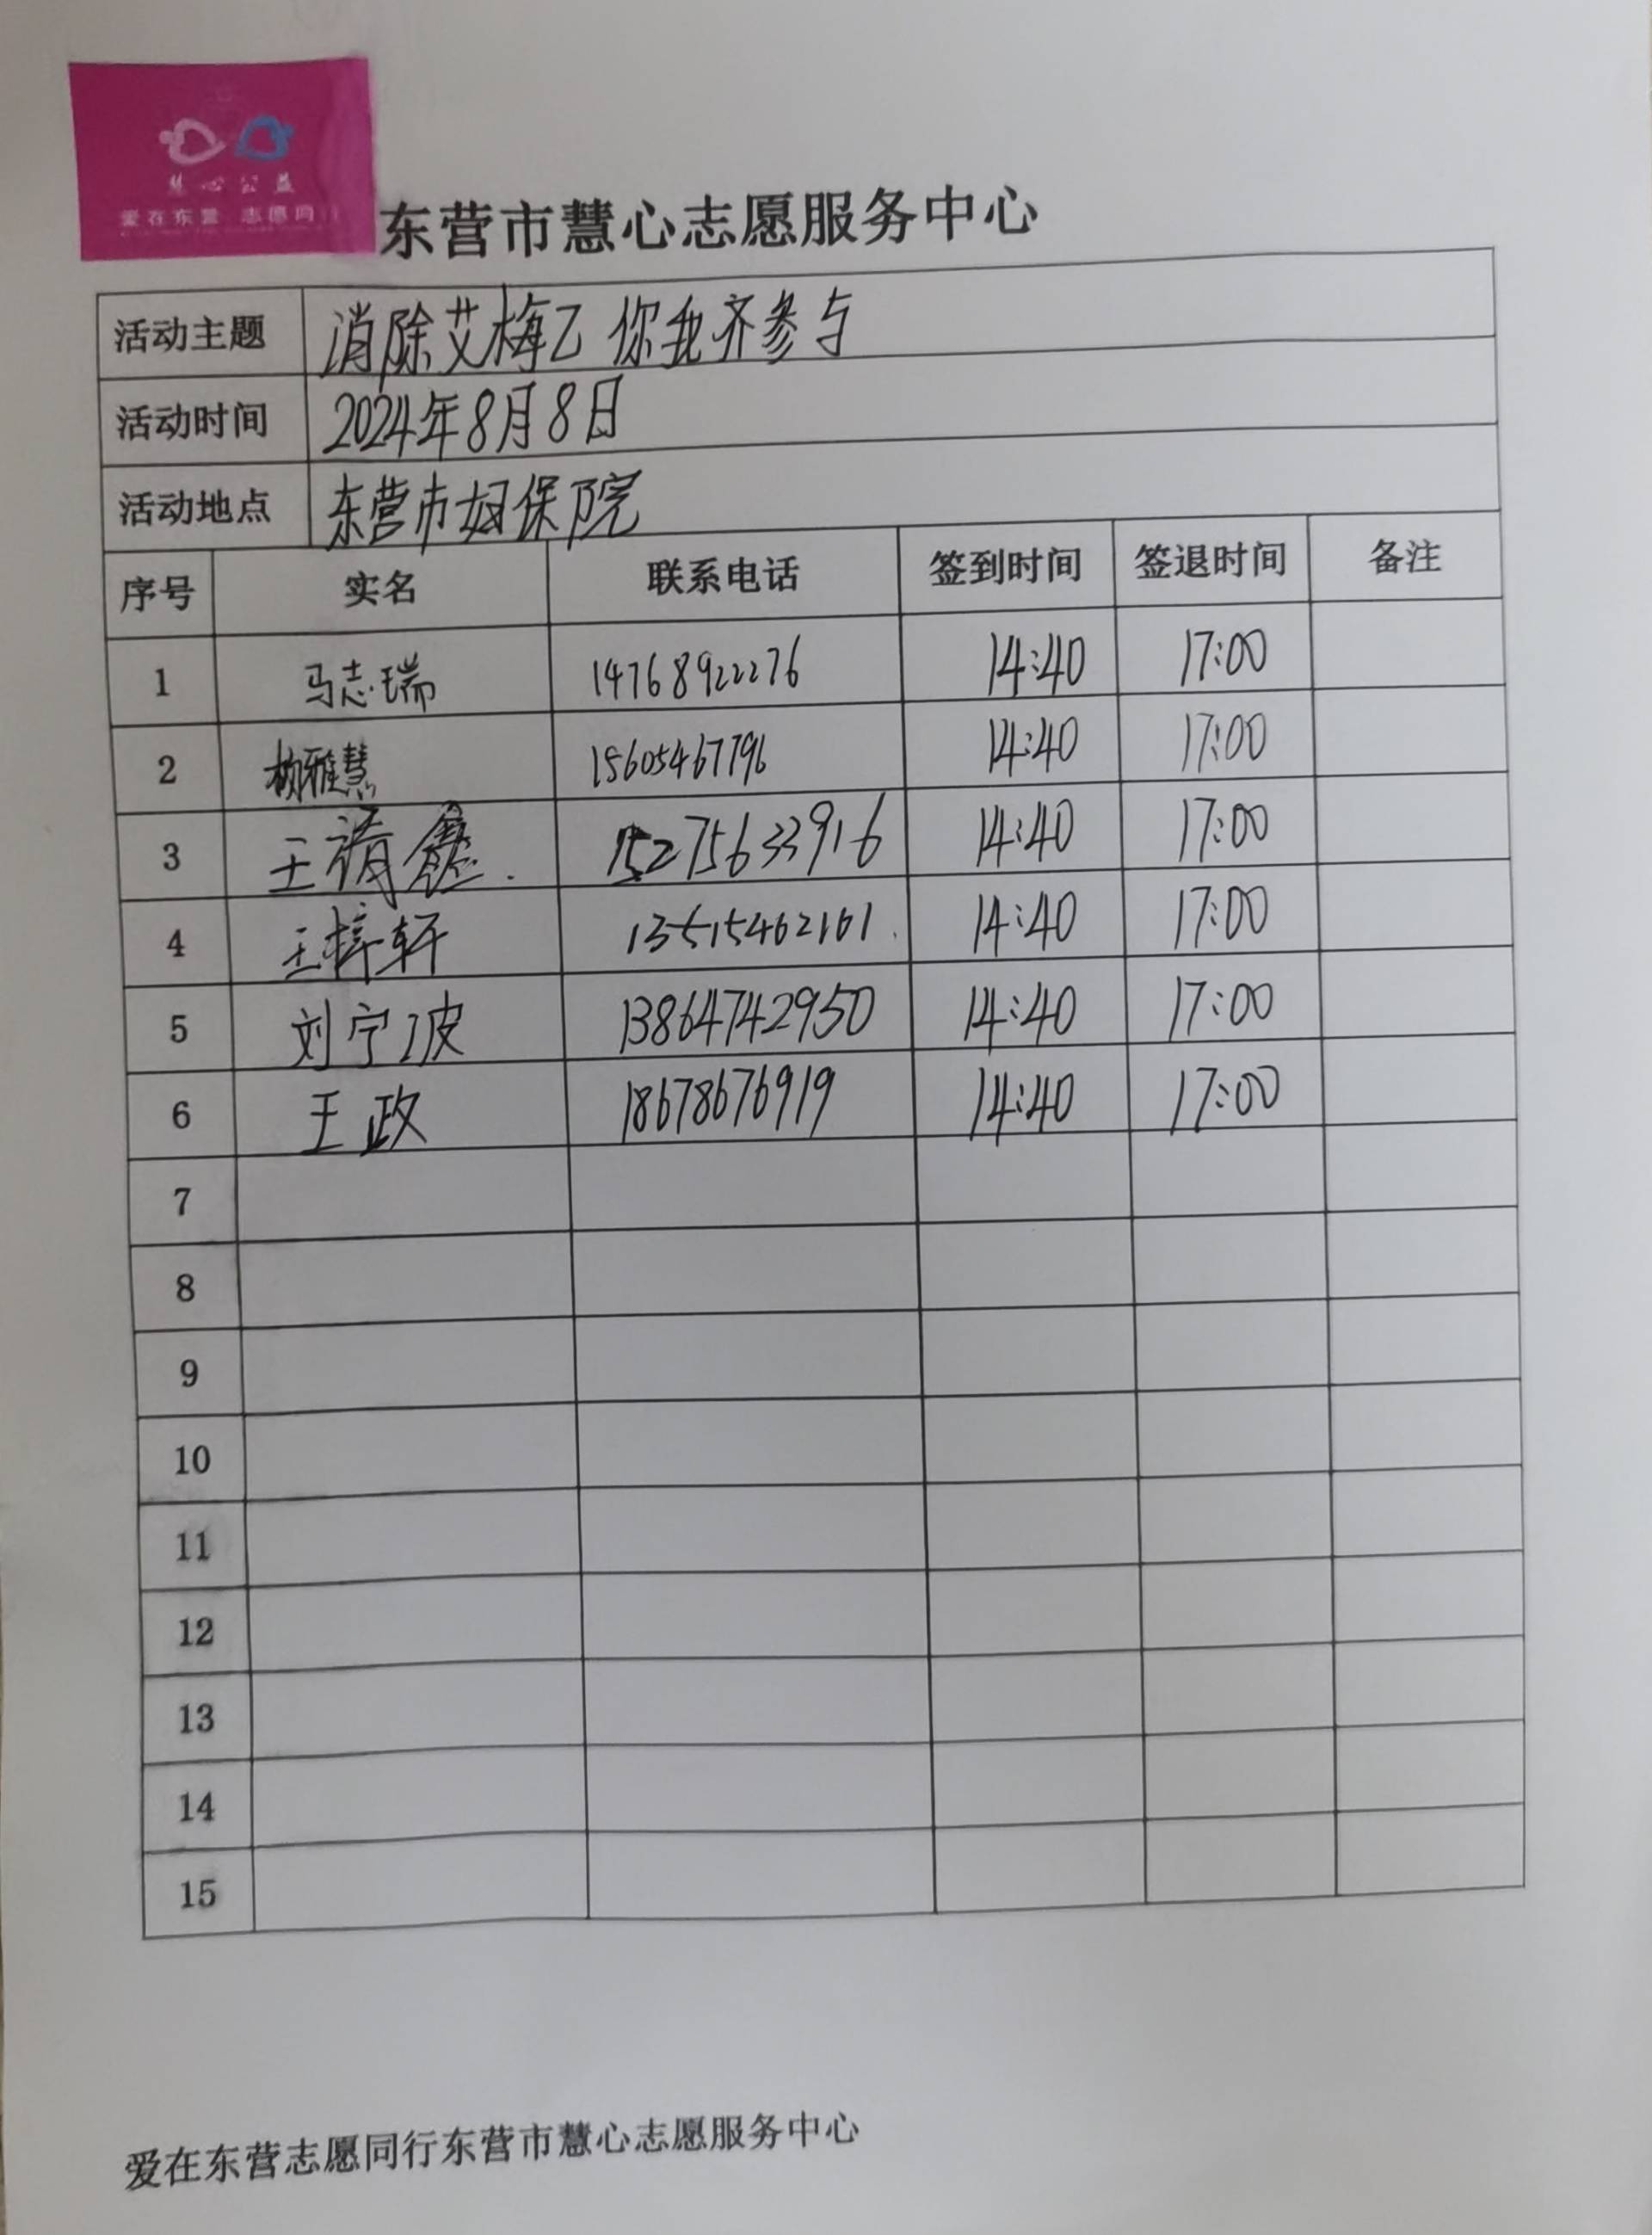 慧心公益
爱在东营 志愿同行
东营市慧心志愿服务中心
活动主题 消除艾梅乙 你我齐参与
活动时间 2024年8月8日
活动地点 东营市妇保院
序号 实名 联系电话 签到时间 签退时间 备注
1 马志瑞 14768922276 14:40 17:00
2 杨雅慧 15605467796 14:40 17:00
3 王清鑫. 15275633916 14:40 17:00
4 王梓轩 13515462161. 14:40 17:00
5 刘宁波 13864742950 14:40 17:00
6 王政 18678676919 14:40 17:00
7
8
9
10
11
12
13
14
15
爱在东营志愿同行东营市慧心志愿服务中心